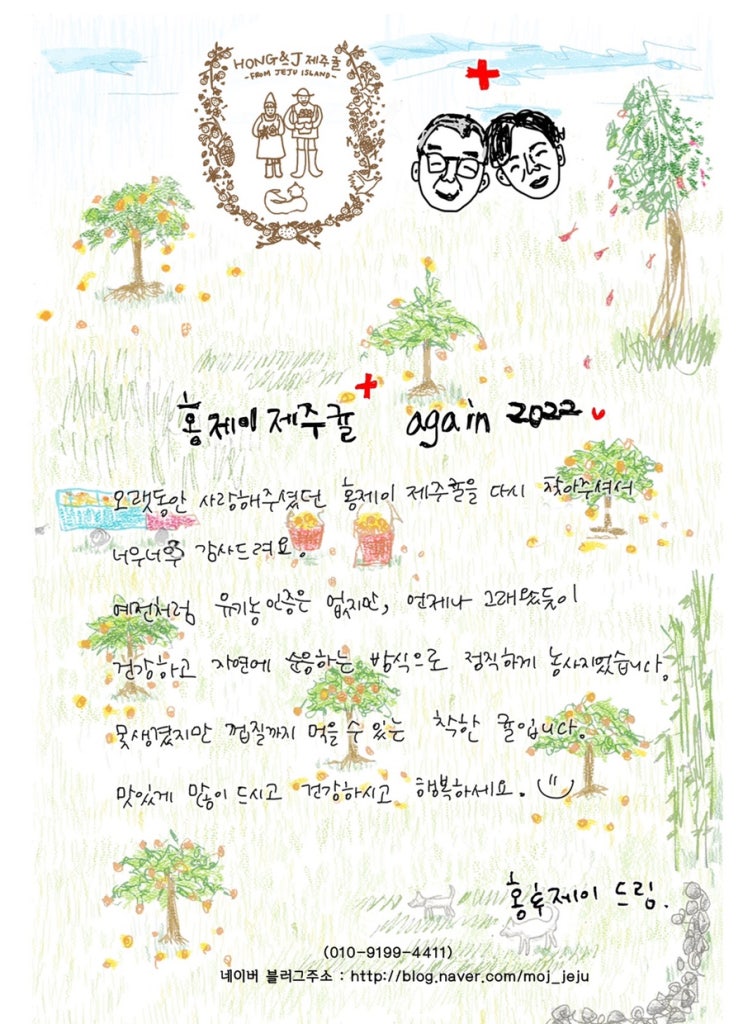 HONG&J 제주귤
-FROM JEJU ISLAND-
홍제이 제주귤 again 2022
오랫동안 사랑해주셨던 홍제이 제주귤을 다시 찾아주셔서
너무너무 감사드려요.
예전처럼 유기농 인증은 없지만, 언제나 그래왔듯이
건강하고 자연에 순응하는 방식으로 정직하게 농사지었습니다.
못생겼지만 껍질까지 먹을 수 있는 착한 귤입니다.
맛있게 많이 드시고 건강하시고 행복하세요.
홍후제이 드림.
(010-9199-4411)
네이버 블러그주소 : http://blog.naver.com/moj_jeju